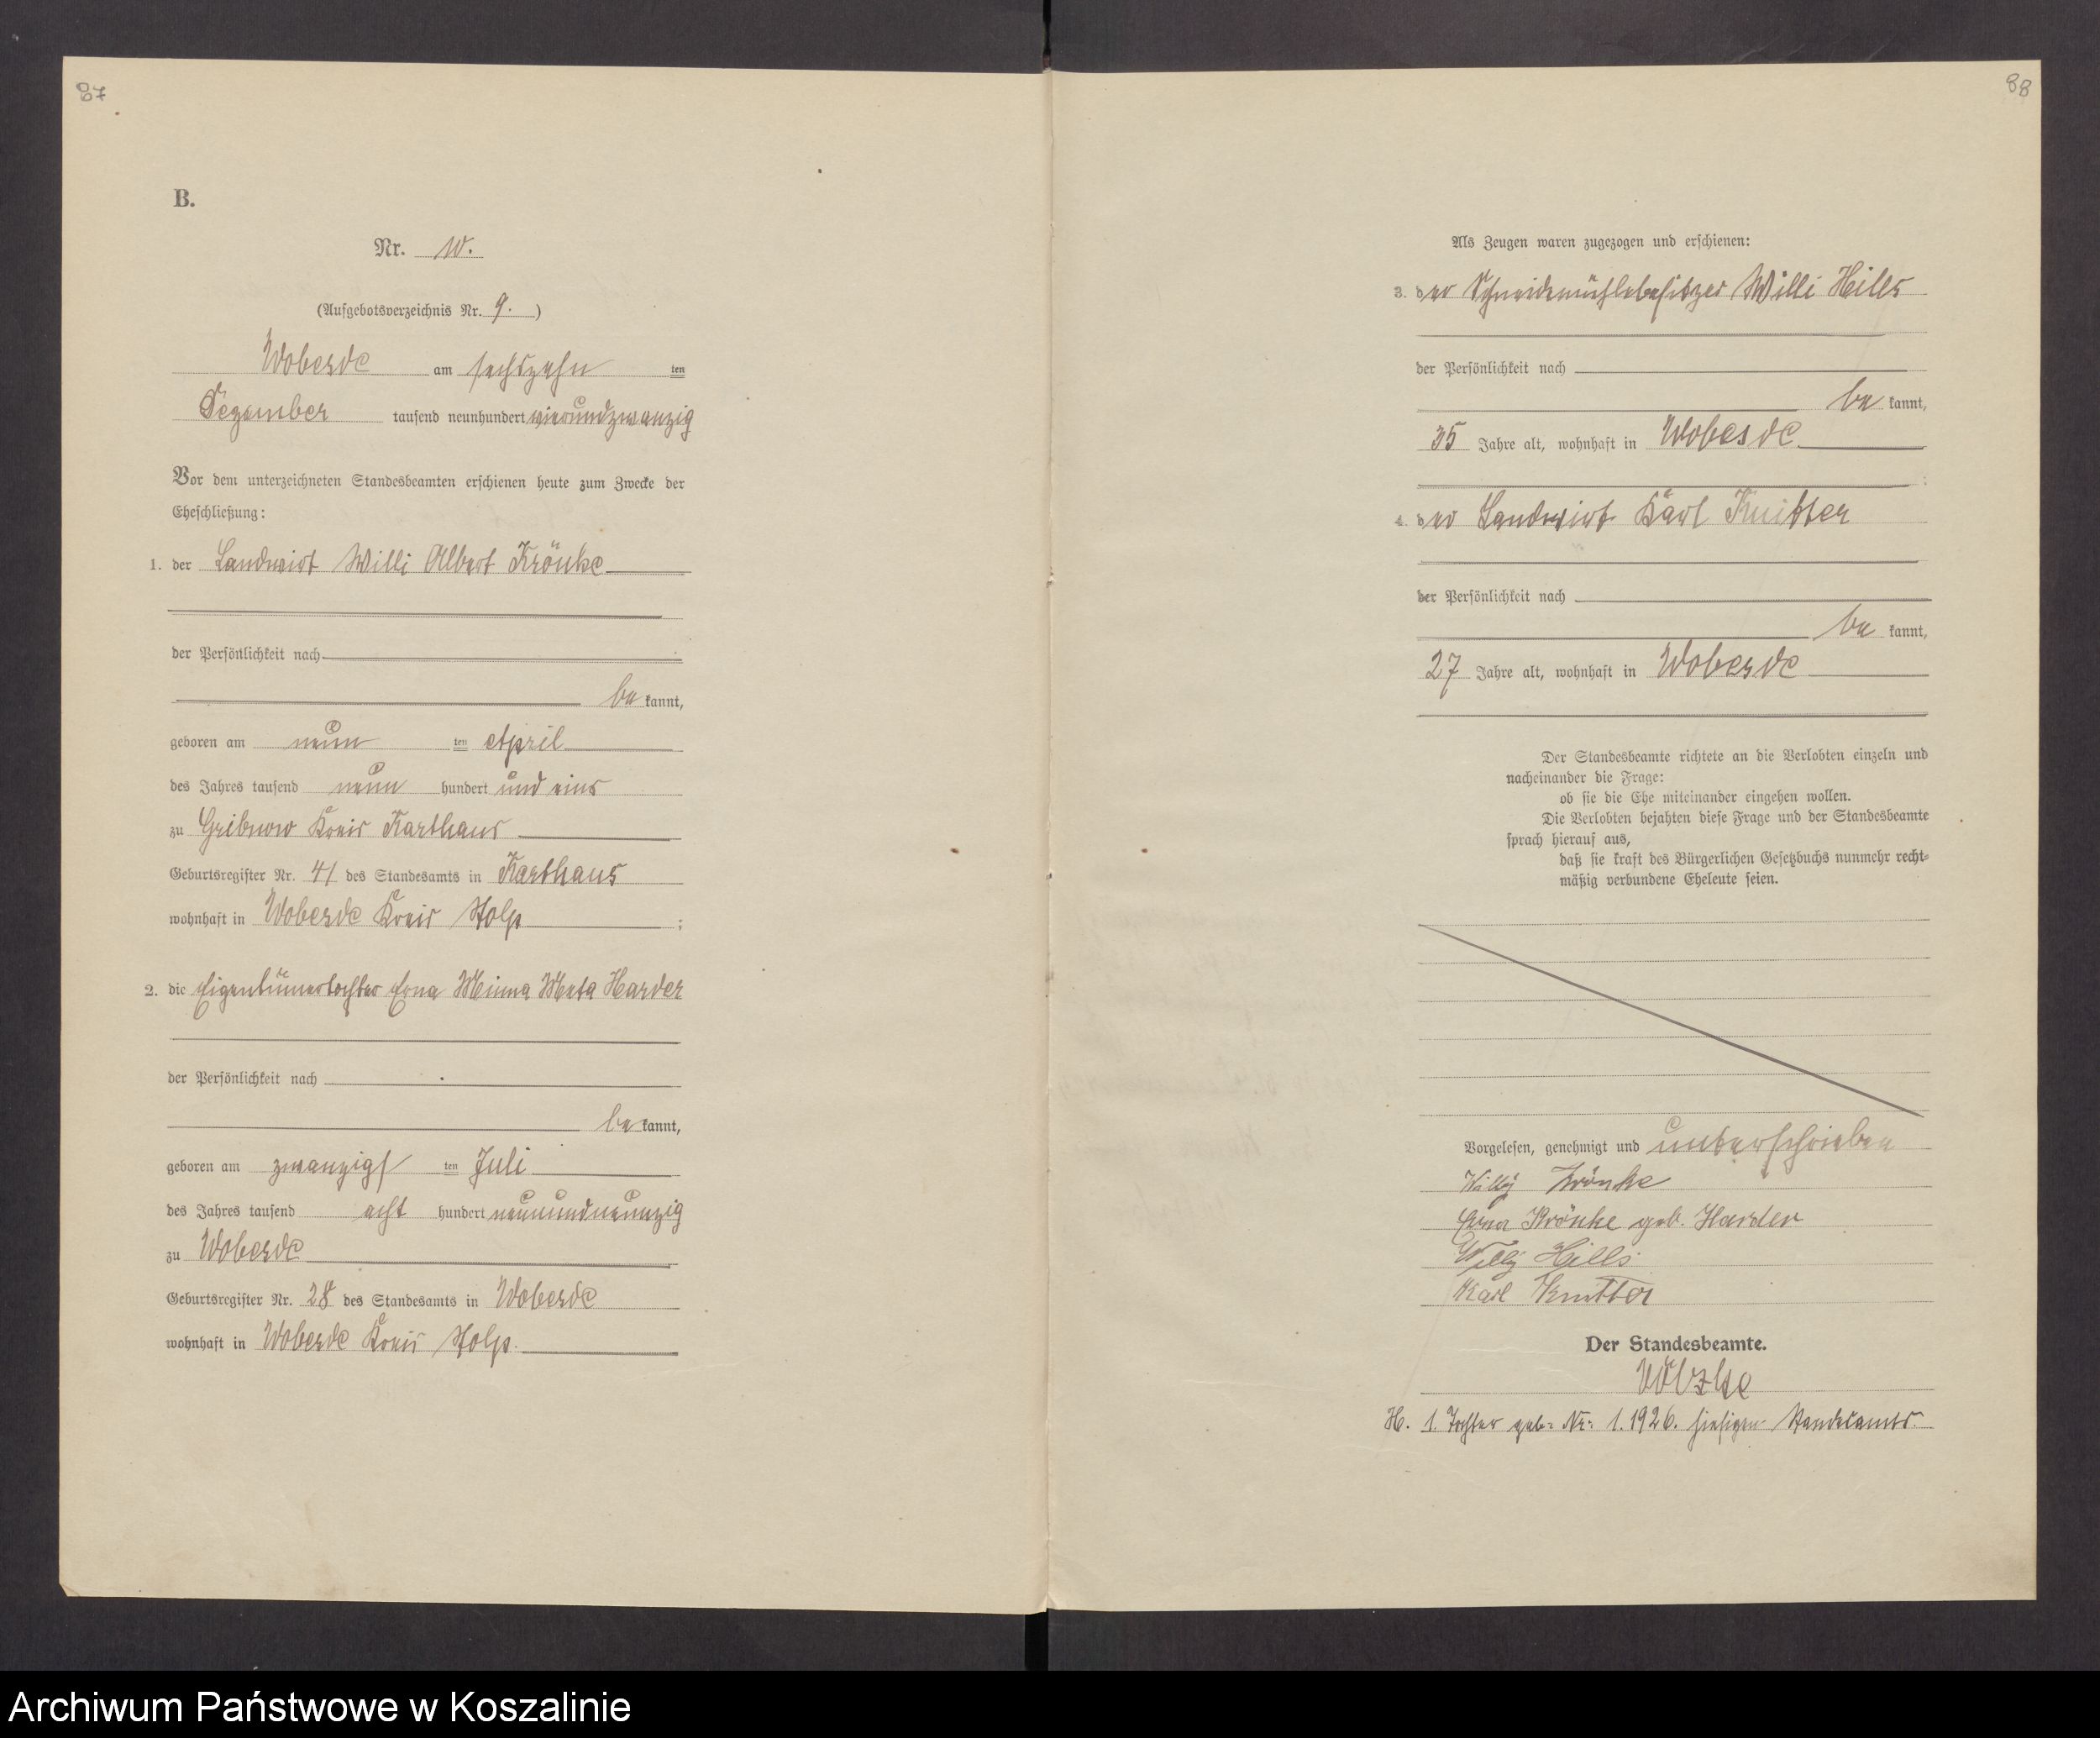 87
B.
Nr. 10.
(Aufgebotsverzeichnis Nr. 9. )
Wobesde am sechszehn ten
Dezember tausend neunhundert vierundzwanzig
Vor dem unterzeichneten Standesbeamten erschienen heute zum Zwecke der
Eheschließung:
1. der Landwirt Willi Albert Krönke
der Persönlichkeit nach
be kannt,
geboren am neun ten April
des Jahres tausend neun hundert und eins
zu Gribnow Kreis Karthaus
Geburtsregister Nr. 41 des Standesamts in Karthaus
wohnhaft in Wobesde Kreis Stolp ;
2. die Eigentümertochter Erna Minna Meta Harder
der Persönlichkeit nach
be kannt,
geboren am zwanzigs ten Juli
des Jahres tausend acht hundert neunundneunzig
zu Wobesde
Geburtsregister Nr. 28 des Standesamts in Wobesde
wohnhaft in Wobesde Kreis Stolp.
88
Als Zeugen waren zugezogen und erschienen:
3. der Schneidemühlebesitzer Willi Hills
der Persönlichkeit nach
be kannt,
35 Jahre alt, wohnhaft in Wobesde
;
4. der Landwirt Karl Knitter
der Persönlichkeit nach
be kannt,
27 Jahre alt, wohnhaft in Wobesde
Der Standesbeamte richtete an die Verlobten einzeln und
nacheinander die Frage:
ob sie die Ehe miteinander eingehen wollen.
Die Verlobten bejahten diese Frage und der Standesbeamte
sprach hierauf aus,
daß sie kraft des Bürgerlichen Gesetzbuchs nunmehr recht-
mäßig verbundene Eheleute seien.
Vorgelesen, genehmigt und unterschrieben
Willy Krönke
Erna Krönke geb. Harder
Willy Hills
Karl Knitter
Der Standesbeamte.
Völzke
H. 1. Tochter geb. Nr. 1.1926. hiesigen Standesamts.
Archiwum Państwowe w Koszalinie